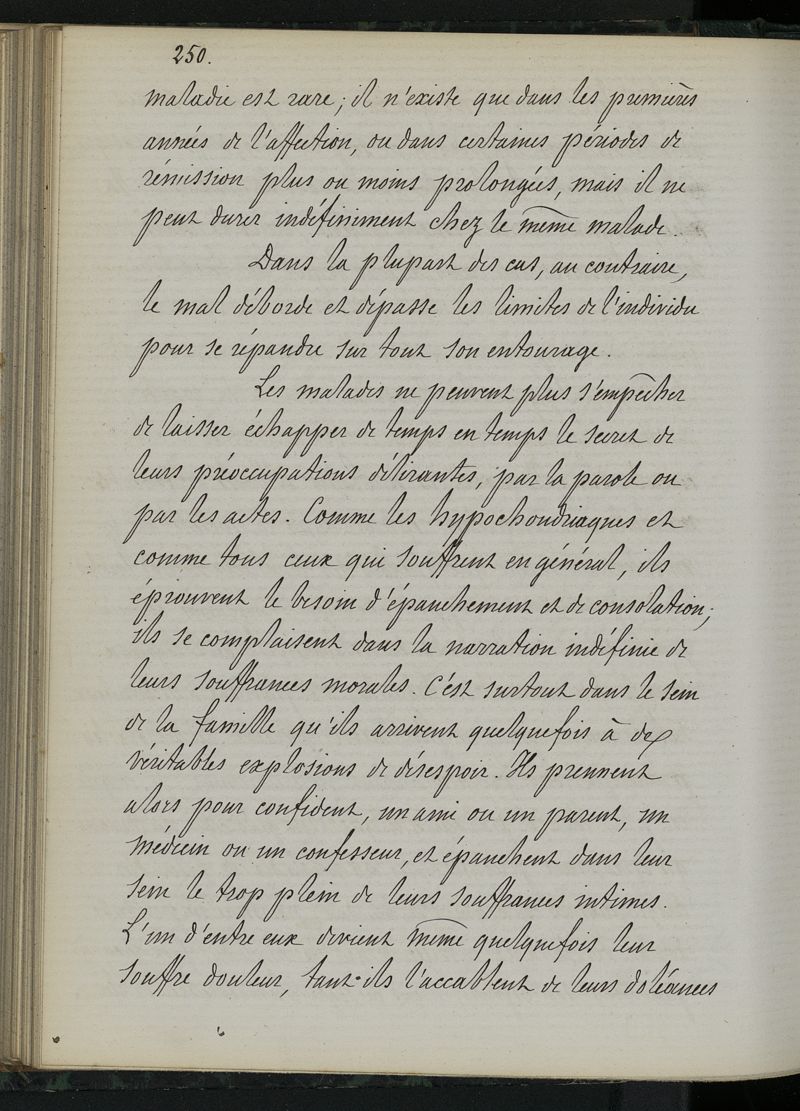 250.
maladie est rare; il n'existe que dans les premières
années de l'affection, ou dans certaines périodes de
rémission plus ou moins prolongées, mais il ne
peut durer indéfiniment chez le même malade.
Dans la plupart des cas, au contraire,
le mal déborde et dépasse les limites de l'individu
pour se répandre sur tout son entourage.
Les malades ne peuvent plus s'empêcher
de laisser échapper de temps en temps le secret de
leurs préoccupations délirantes, par la parole ou
par les actes. Comme les hypochondriaques et
comme tous ceux qui souffrent en général, ils
éprouvent le besoin d'épanchement et de consolation;
ils se complaisent dans la narration indéfinie de
leurs souffrances morales. C'est surtout dans le sein
de la famille qu'ils arrivent quelquefois à de
véritables explosions de désespoir. Ils prennent
alors pour confident, un ami ou un parent, un
médecin ou un confesseur, et épanchent dans leur
sein le trop plein de leurs souffrances intimes.
L'un d'entre eux devient même quelquefois leur
souffre douleur, tant ils l'accablent de leurs doléances